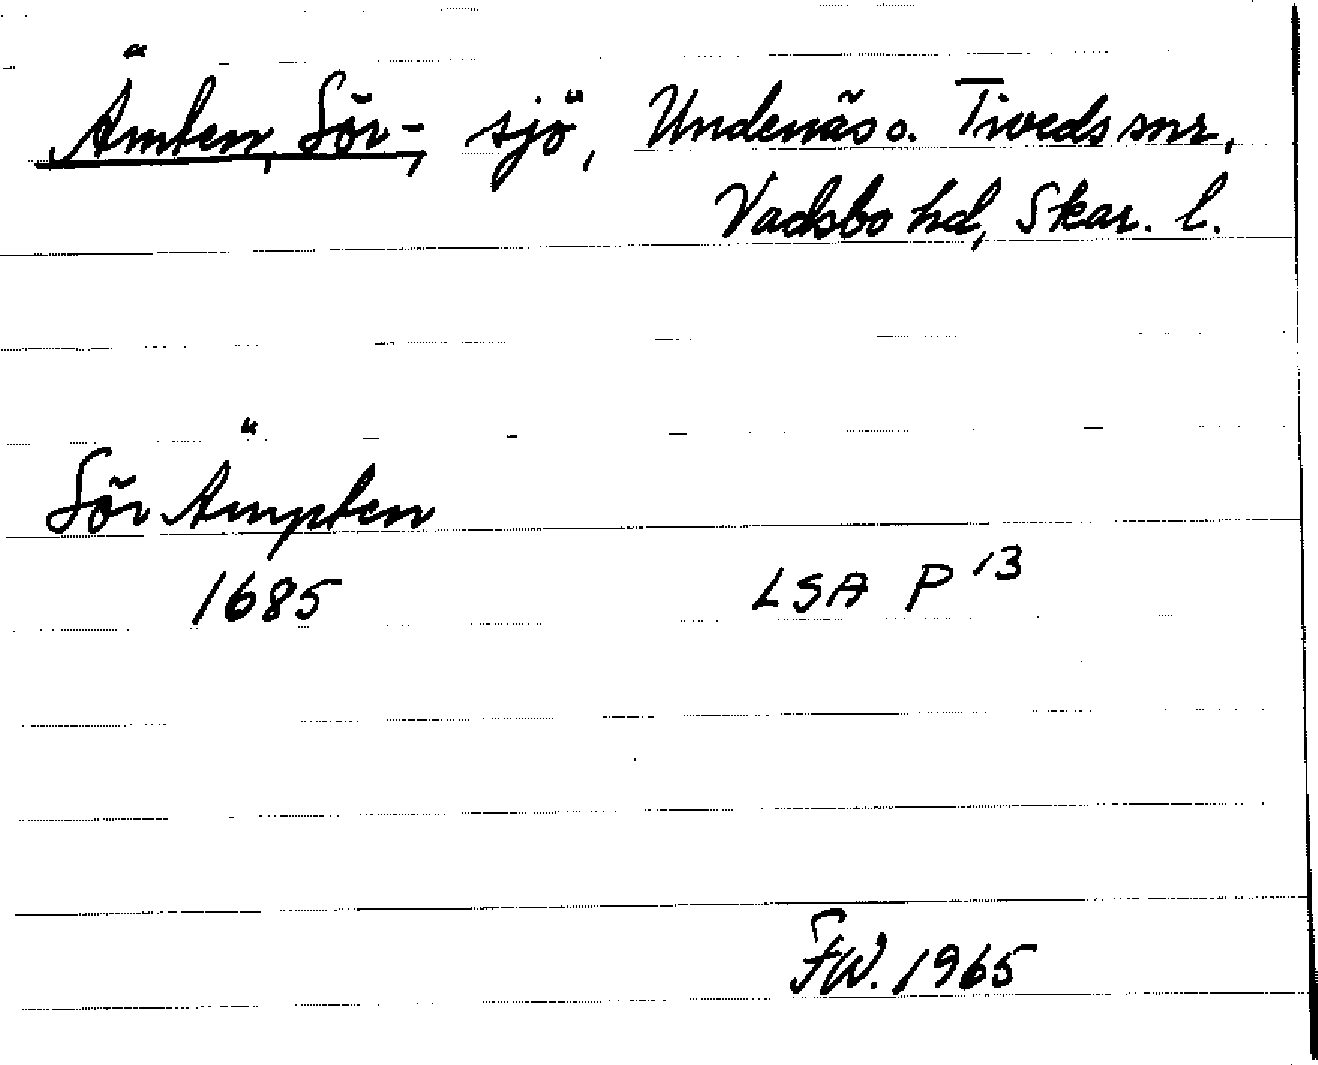 Ämten, Sör-, sjö, Undenäs o. Tiveds snr,
Vadsbo hd, Skar. l.
Sör Ämpten
1685 LSA P 13
FW. 1965